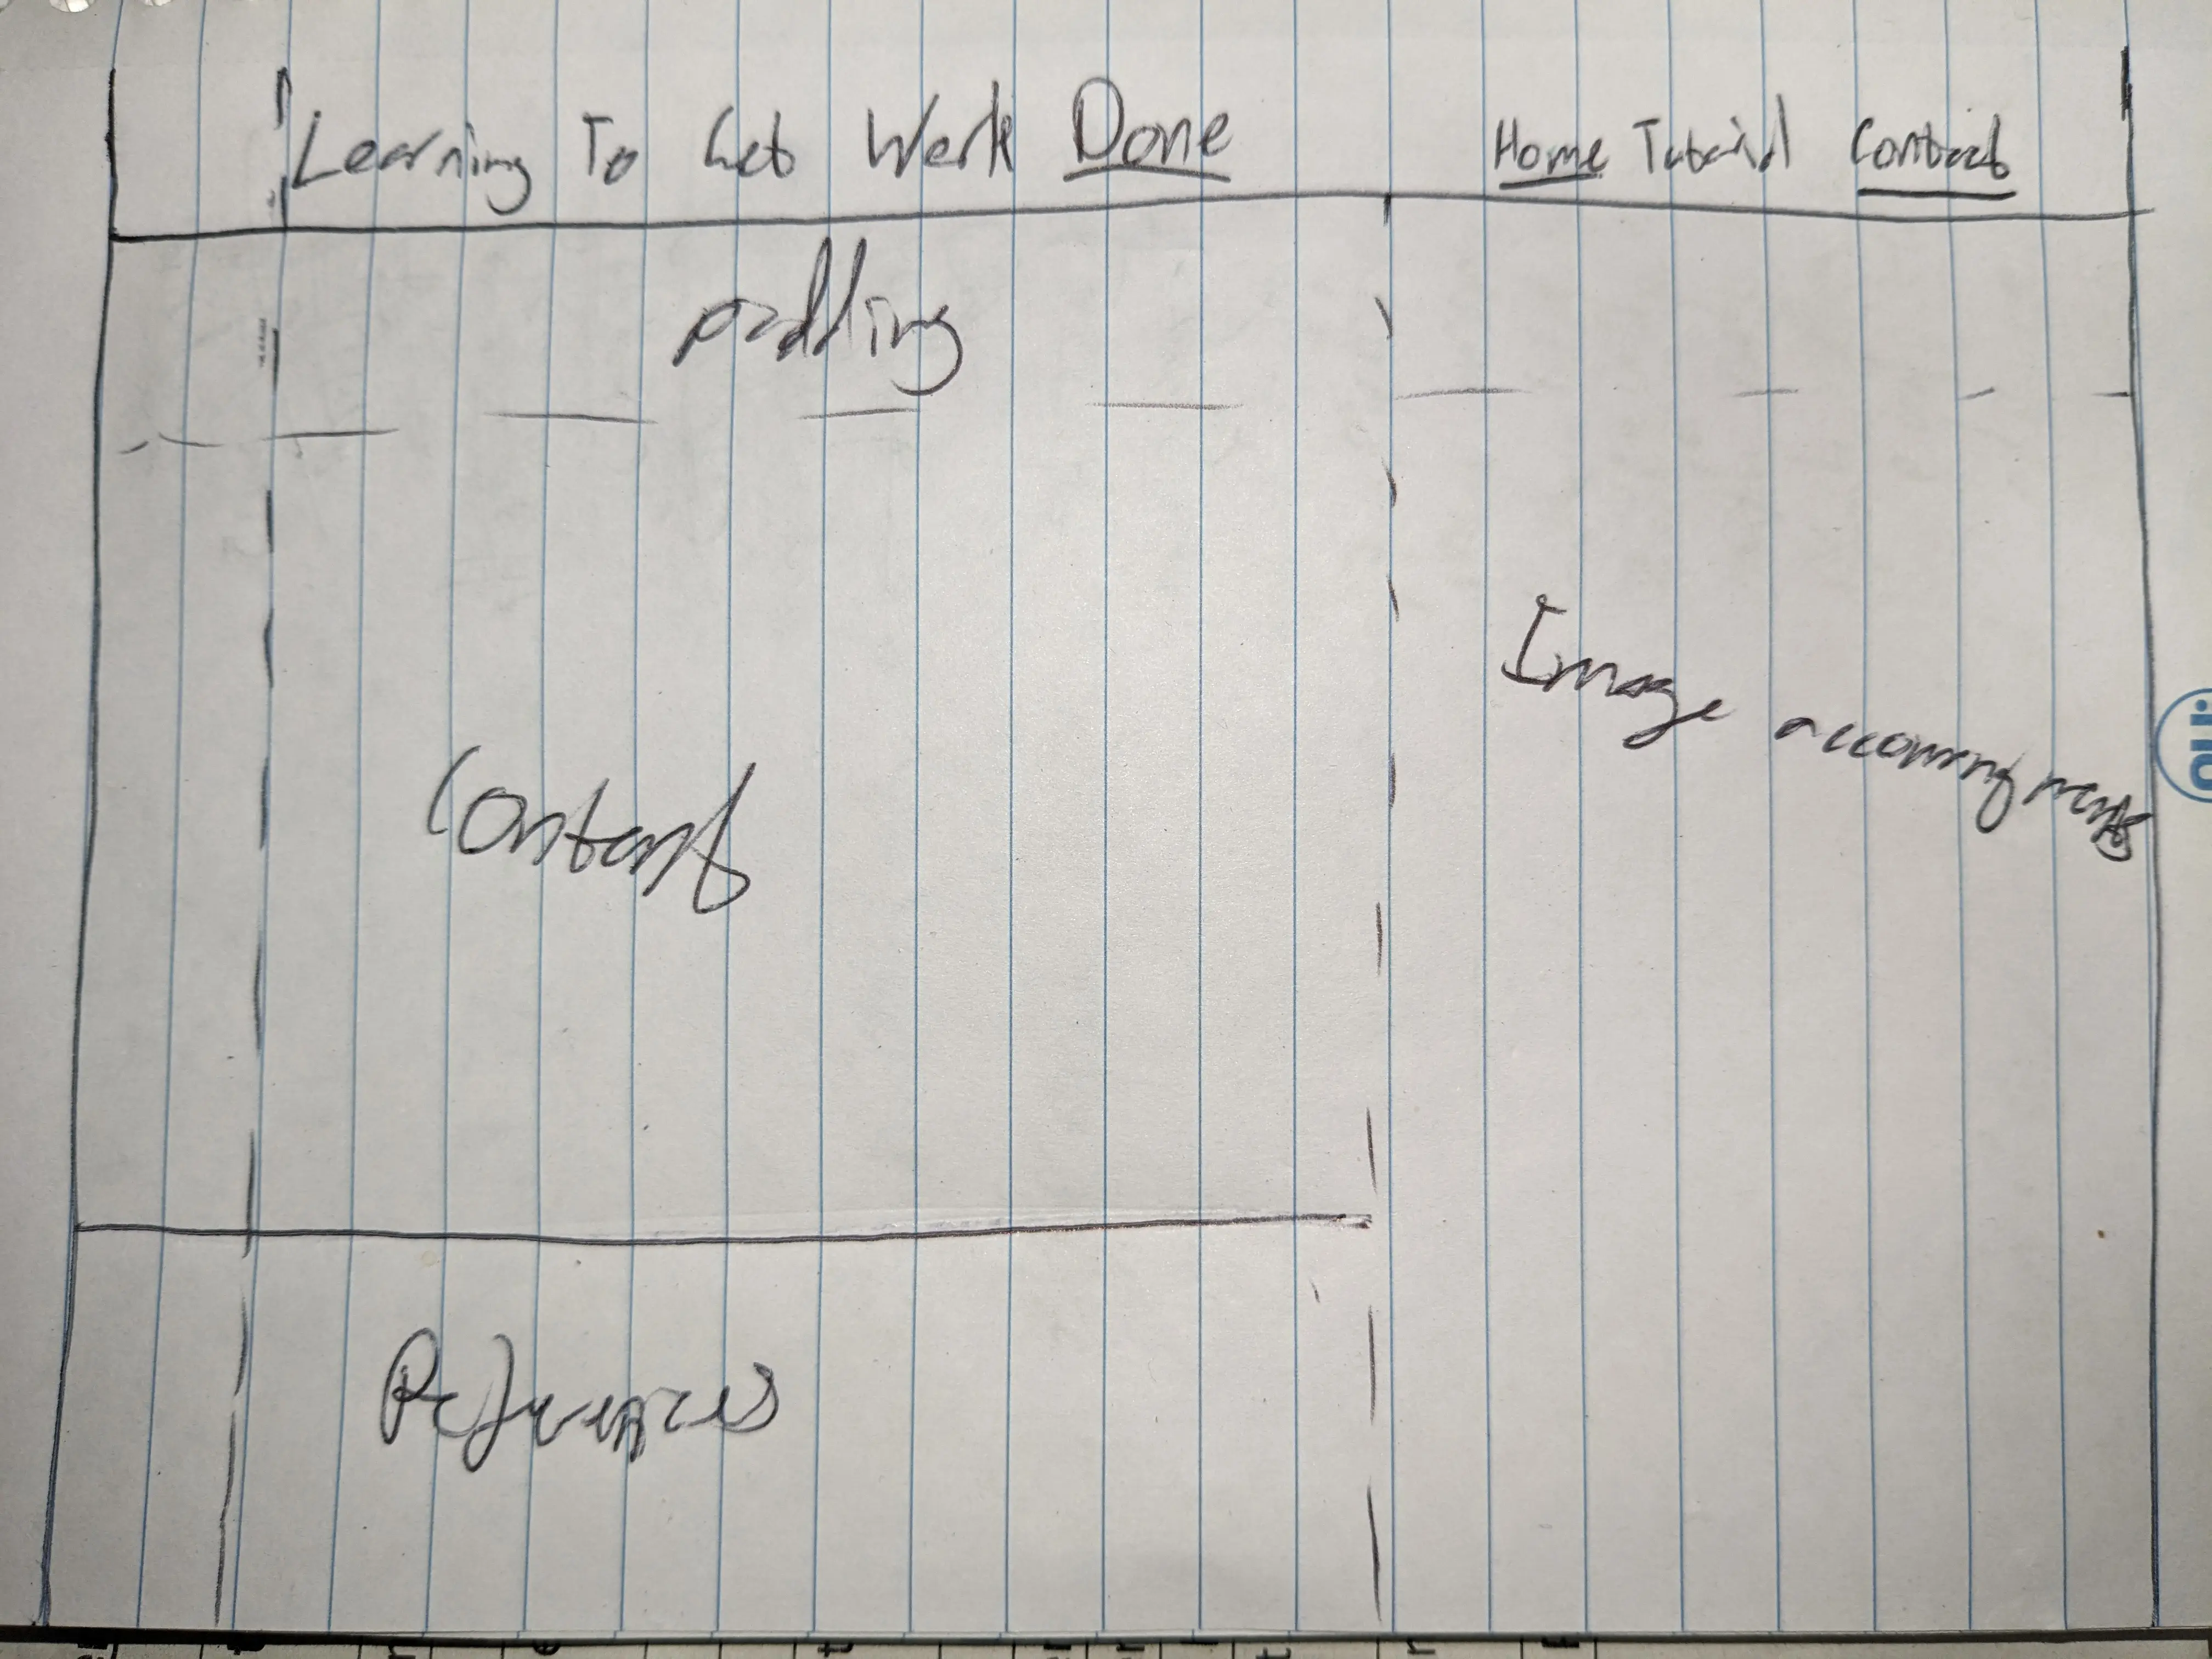 Learning To Get Work Done
Home Tutorial Contact
padding
Image accompaniments
Content
References